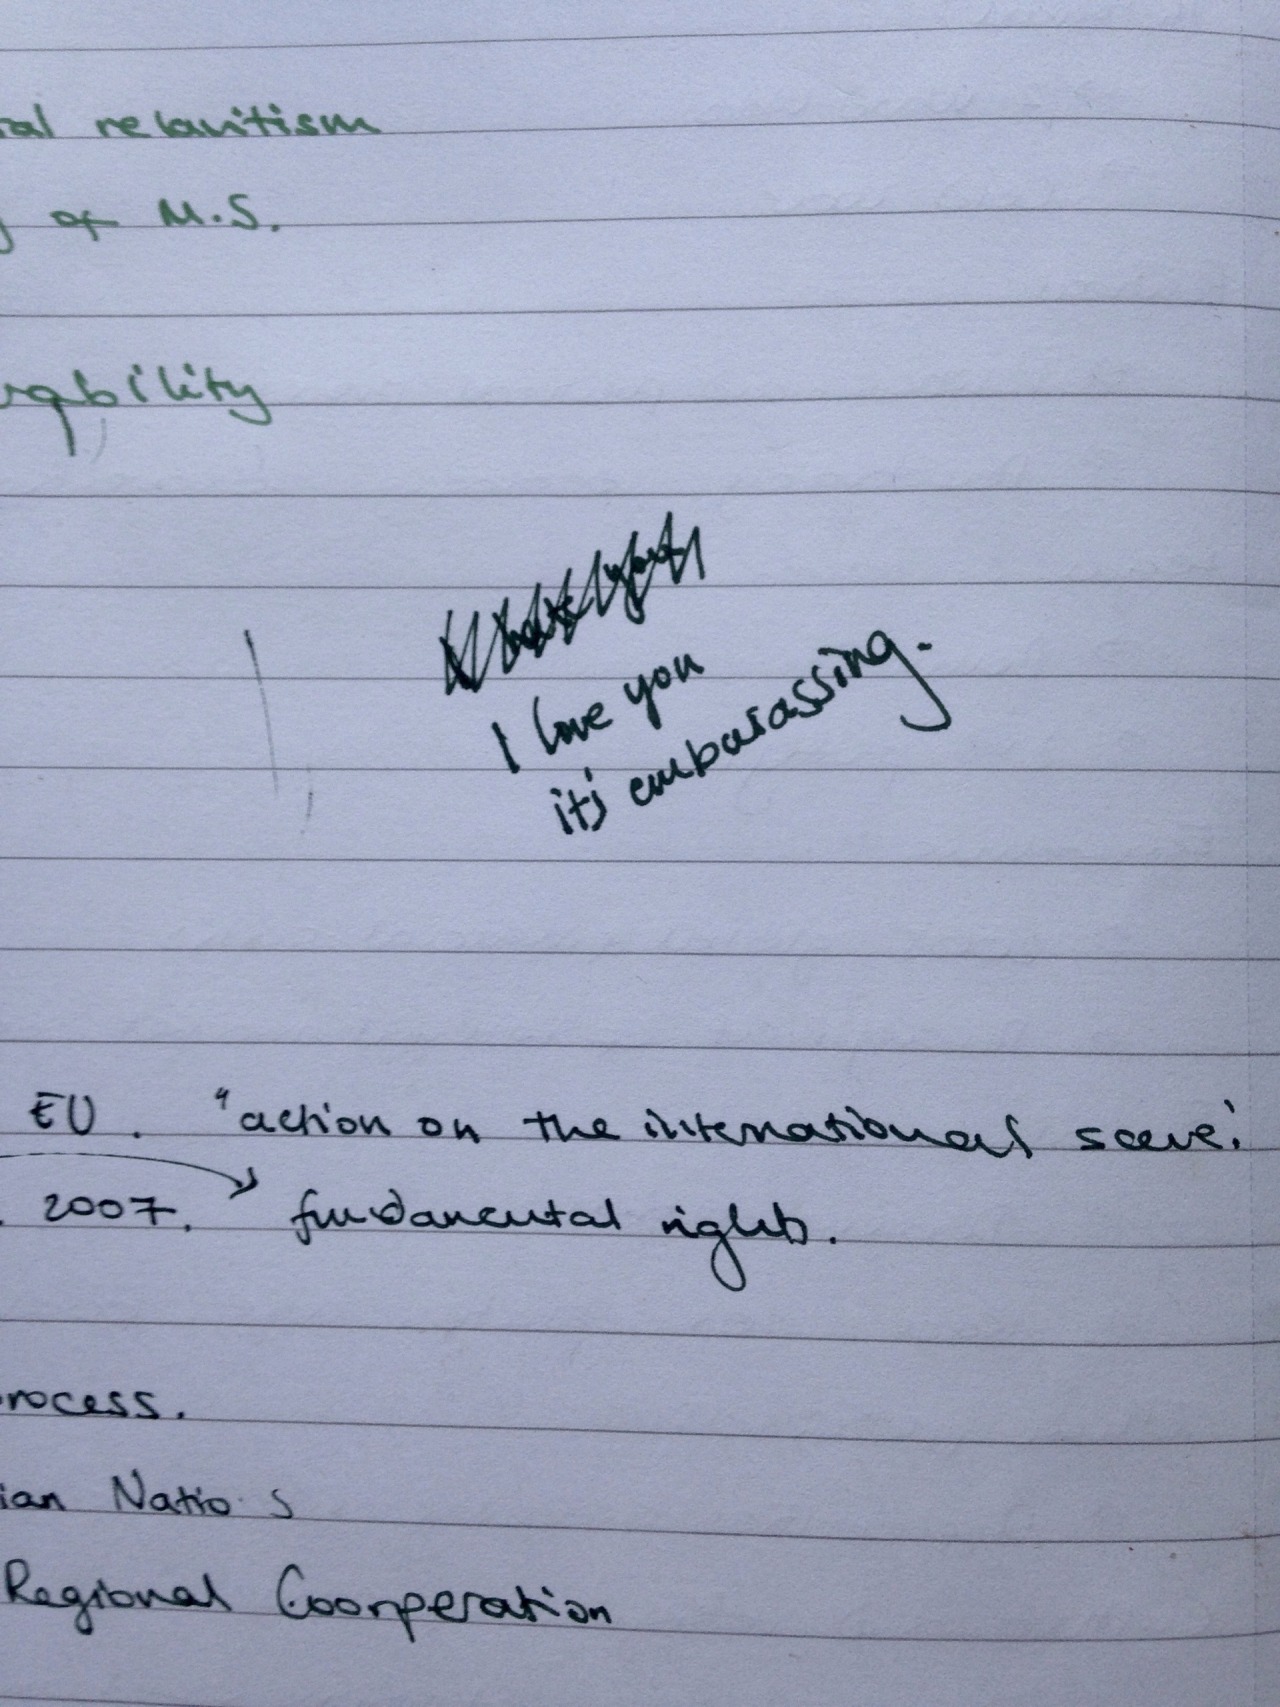 al relavitism
of M.S.
I love you
it's embarassing.
EU. "action on the international scene'.
2007. fundamental rights.
rocess.
ian Natio s
Regional Coorperation